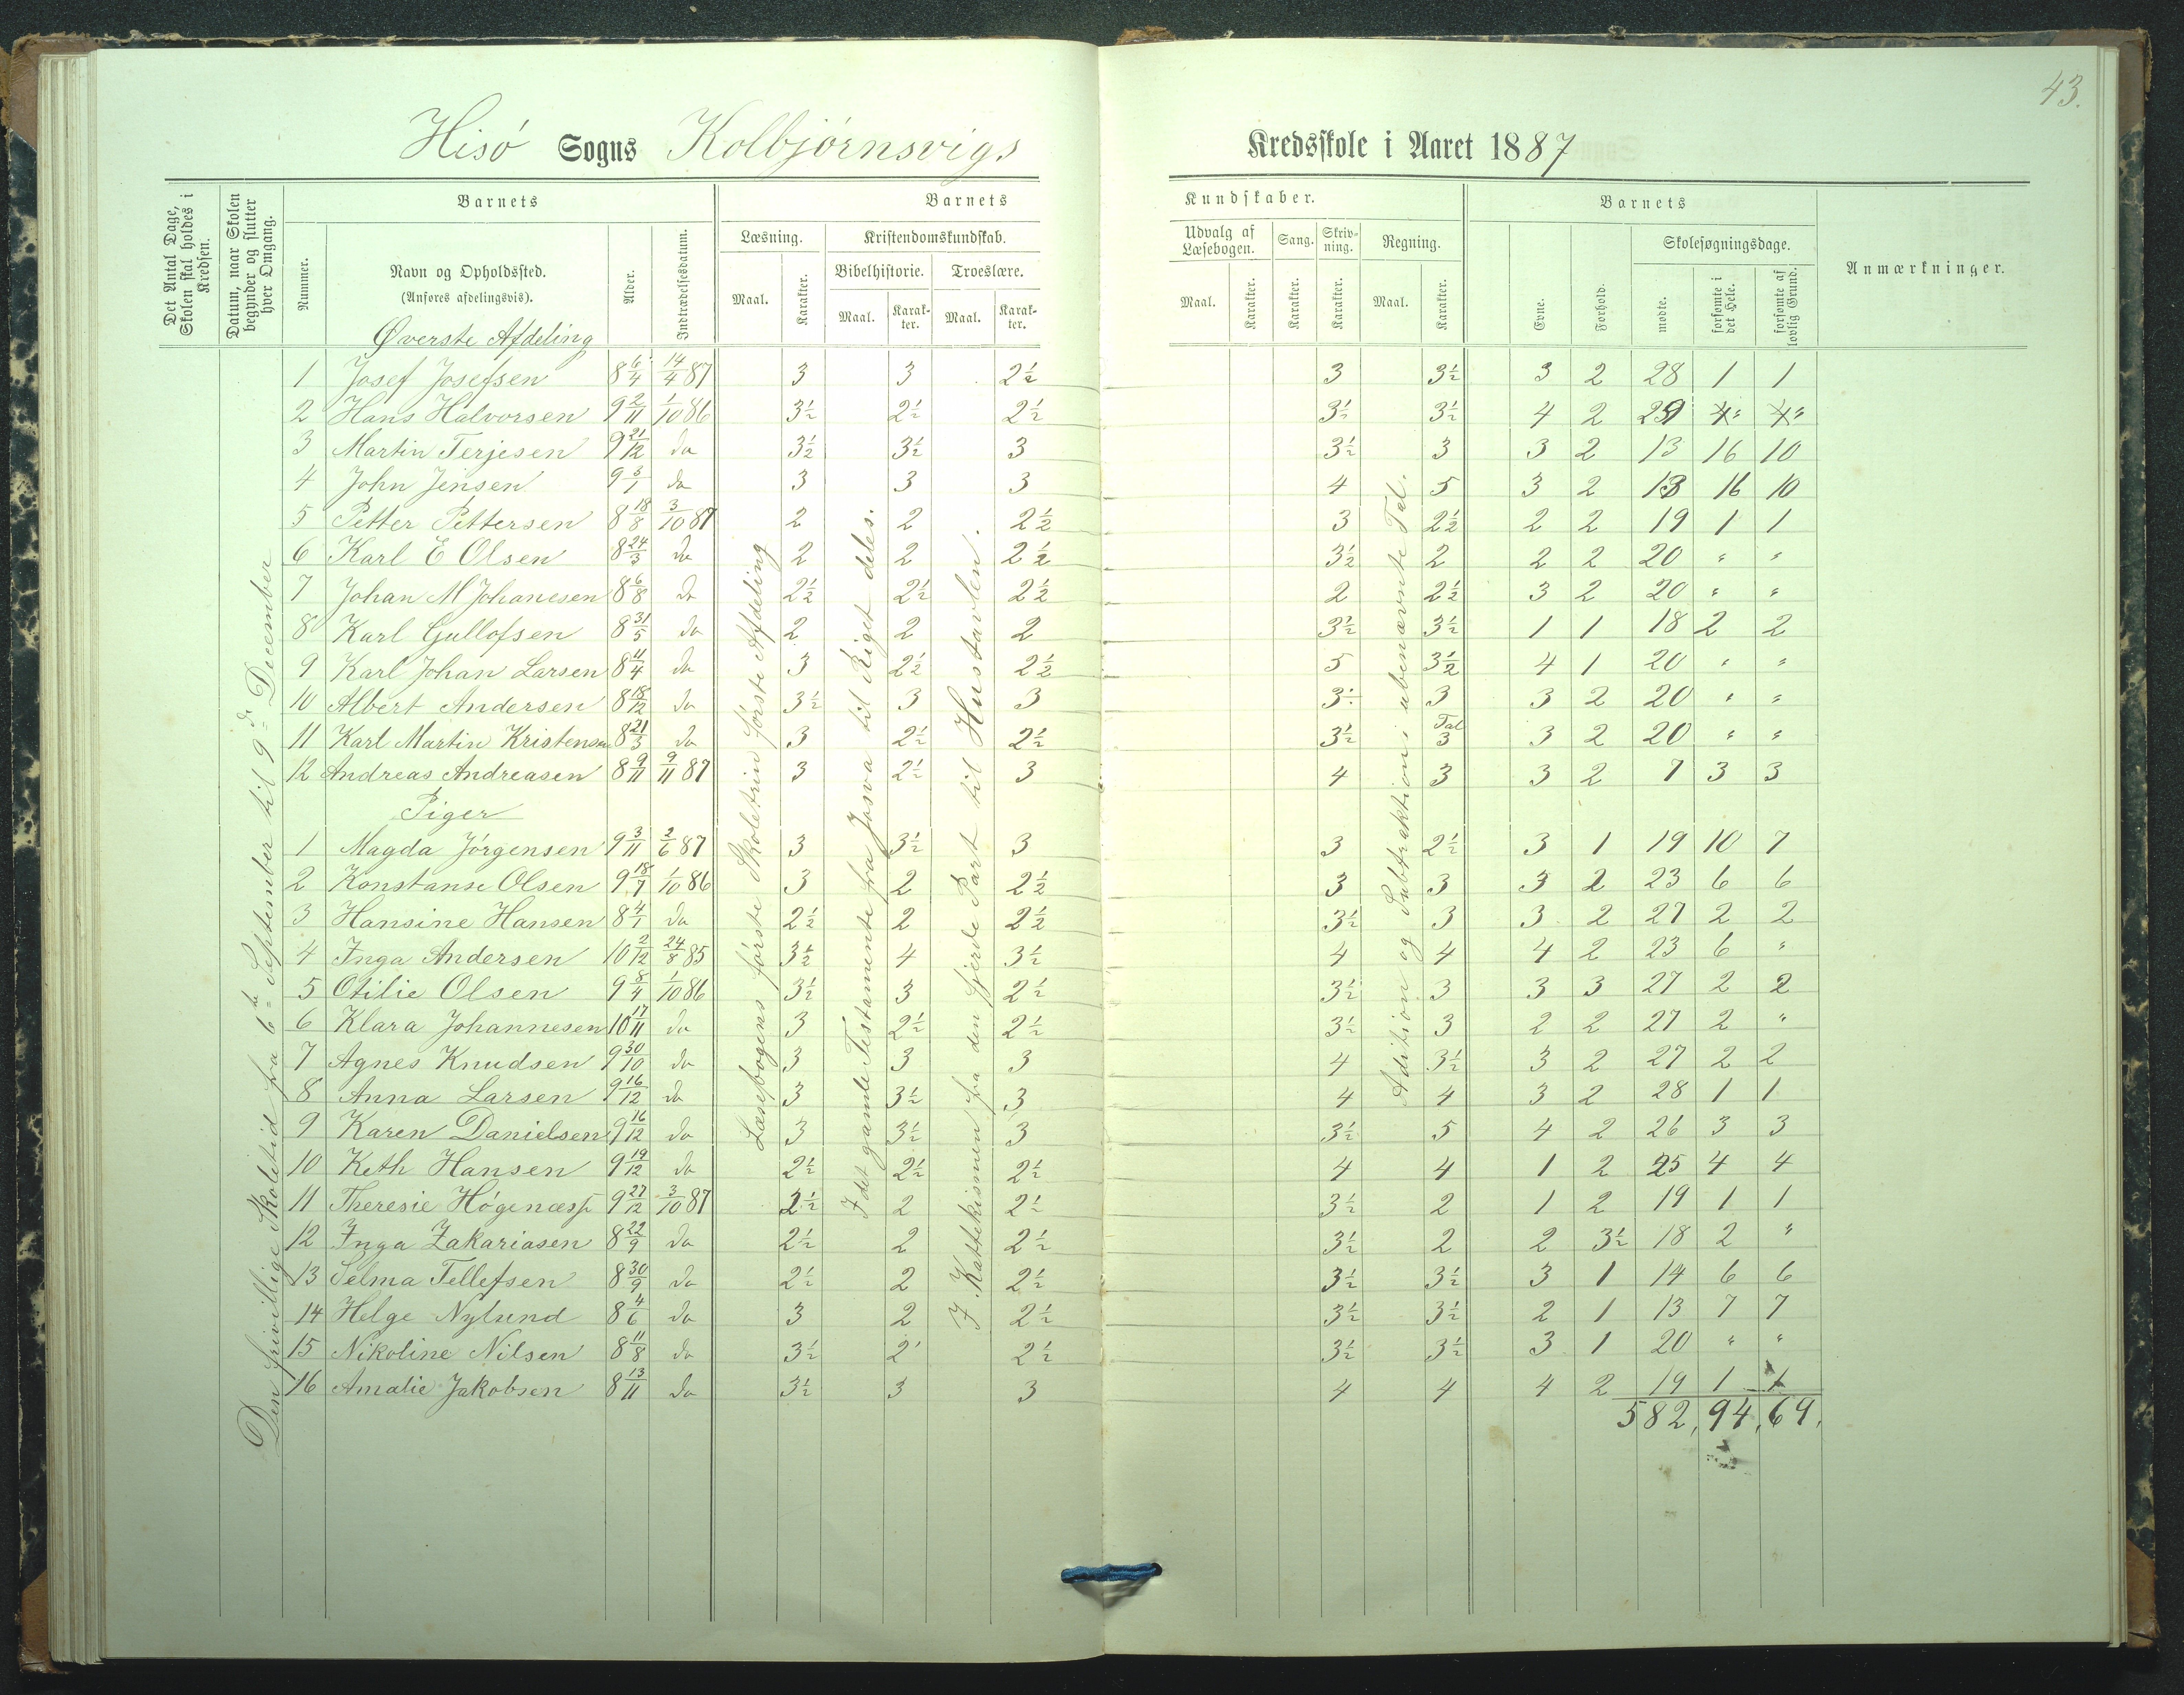 43.
Hisö Sogns Kolbjörnsvigs Kredsskole i Aaret 1887
Det Antal Dage, Skolen skal holdes i Kredsen.
Datum, naar Skolen begynder og slutter hver Omgang.
Barnets
Nummer.
Navn og Opholdssted. (Anføres afdelingsvis).
Alder.
Indtrædelsesdatum.
Barnets Kundskaber.
Læsning. Maal. Karakter.
Kristendomskundskab.
Bibelhistorie. Maal. Karakter.
Troeslære. Maal. Karakter.
Udvalg af Læsebogen. Maal. Karakter.
Sang. Karakter.
Skrivning. Karakter.
Regning. Maal. Karakter.
Barnets
Evne.
Forhold.
Skolesøgningsdage.
mødte.
forsømte i det Hele.
forsømte af lovlig Grund.
Anmærkninger.
Den frivillige Skoletid fra 6te September til 9de December
Læsebogens første Skoletrin første Afdeling
I det gamle Testamente fra Josva til Riget deles.
I Kattekismen fra den fjerde Part til Hustavlen.
Adition og Subtraktion i ubenævnte Tal.
Øverste Afdeling
1 Josef Josefsen 8 6/4 14/4 87 3 3 2½ 3 3½ 3 2 28 1 1
2 Hans Halvorsen 9 2/11 1/10 86 3½ 2½ 2½ 3½ 3½ 4 2 29 " "
3 Martin Terjesen 9 21/12 do 3½ 3½ 3 3½ 3 3 2 13 16 10
4 John Jensen 9 3/1 do 3 3 3 4 5 3 2 13 16 10
5 Petter Pettersen 8 18/8 3/10 87 2 2 2½ 3 2½ 2 2 19 1 1
6 Karl E Olsen 8 24/3 do 2 2 2½ 3½ 2 2 2 20 " "
7 Johan M Johanesen 8 6/8 do 2½ 2½ 2½ 2 2½ 3 2 20 " "
8 Karl Gullofsen 8 31/5 do 2 2 2 3½ 3½ 1 1 18 2 2
9 Karl Johan Larsen 8 11/4 do 3 2½ 2½ 5 3½ 4 1 20 " "
10 Albert Andersen 8 18/12 do 3½ 3 3 3½ 3 3 2 20 " "
11 Karl Martin Kristensen 8 21/3 do 3 2½ 2½ 3½ Tal 3 3 2 20 " "
12 Andreas Andreasen 8 9/11 9/11 87 3 2½ 3 4 3 3 2 7 3 3
Piger
1 Magda Jörgensen 9 3/11 2/6 87 3 3½ 3 3 2½ 3 1 19 10 7
2 Konstanse Olsen 9 18/7 1/10 86 3 2 2½ 3 3 3 2 23 6 6
3 Hansine Hansen 8 4/1 do 2½ 2 2½ 3½ 3 3 2 27 2 2
4 Inga Andersen 10 2/12 24/8 85 3½ 4 3½ 4 4 4 2 23 6 "
5 Otilie Olsen 9 8/4 1/10 86 3½ 3 2½ 3½ 3 3 3 27 2 2
6 Klara Johannesen 10 17/11 do 3 2½ 2½ 3½ 3 2 2 27 2 "
7 Agnes Knudsen 9 30/10 do 3 3 3 4 3½ 3 2 27 2 2
8 Anna Larsen 9 16/12 do 3 3½ 3 4 4 3 2 28 1 1
9 Karen Danielsen 9 16/12 do 3 3½ 3 3½ 5 4 2 26 3 3
10 Keth Hansen 9 19/12 do 2½ 2½ 2½ 4 4 1 2 25 4 4
11 Theresie Högenæss 9 27/12 3/10 87 2½ 2 2½ 3½ 2 1 2 19 1 1
12 Inga Zakariasen 8 22/9 do 2½ 2 2½ 3½ 2 2 3½ 18 2 "
13 Selma Tellefsen 8 30/9 do 2½ 2 2½ 3½ 3½ 3 1 14 6 6
14 Helge Nylund 8 4/6 do 3 2 2½ 3½ 3½ 2 1 13 7 7
15 Nikoline Nilsen 8 11/8 do 3½ 2 2½ 3½ 3½ 3 1 20 " "
16 Amalie Jakobsen 8 13/11 do 3½ 3 3 4 4 4 2 19 1 1
582, 94, 69,